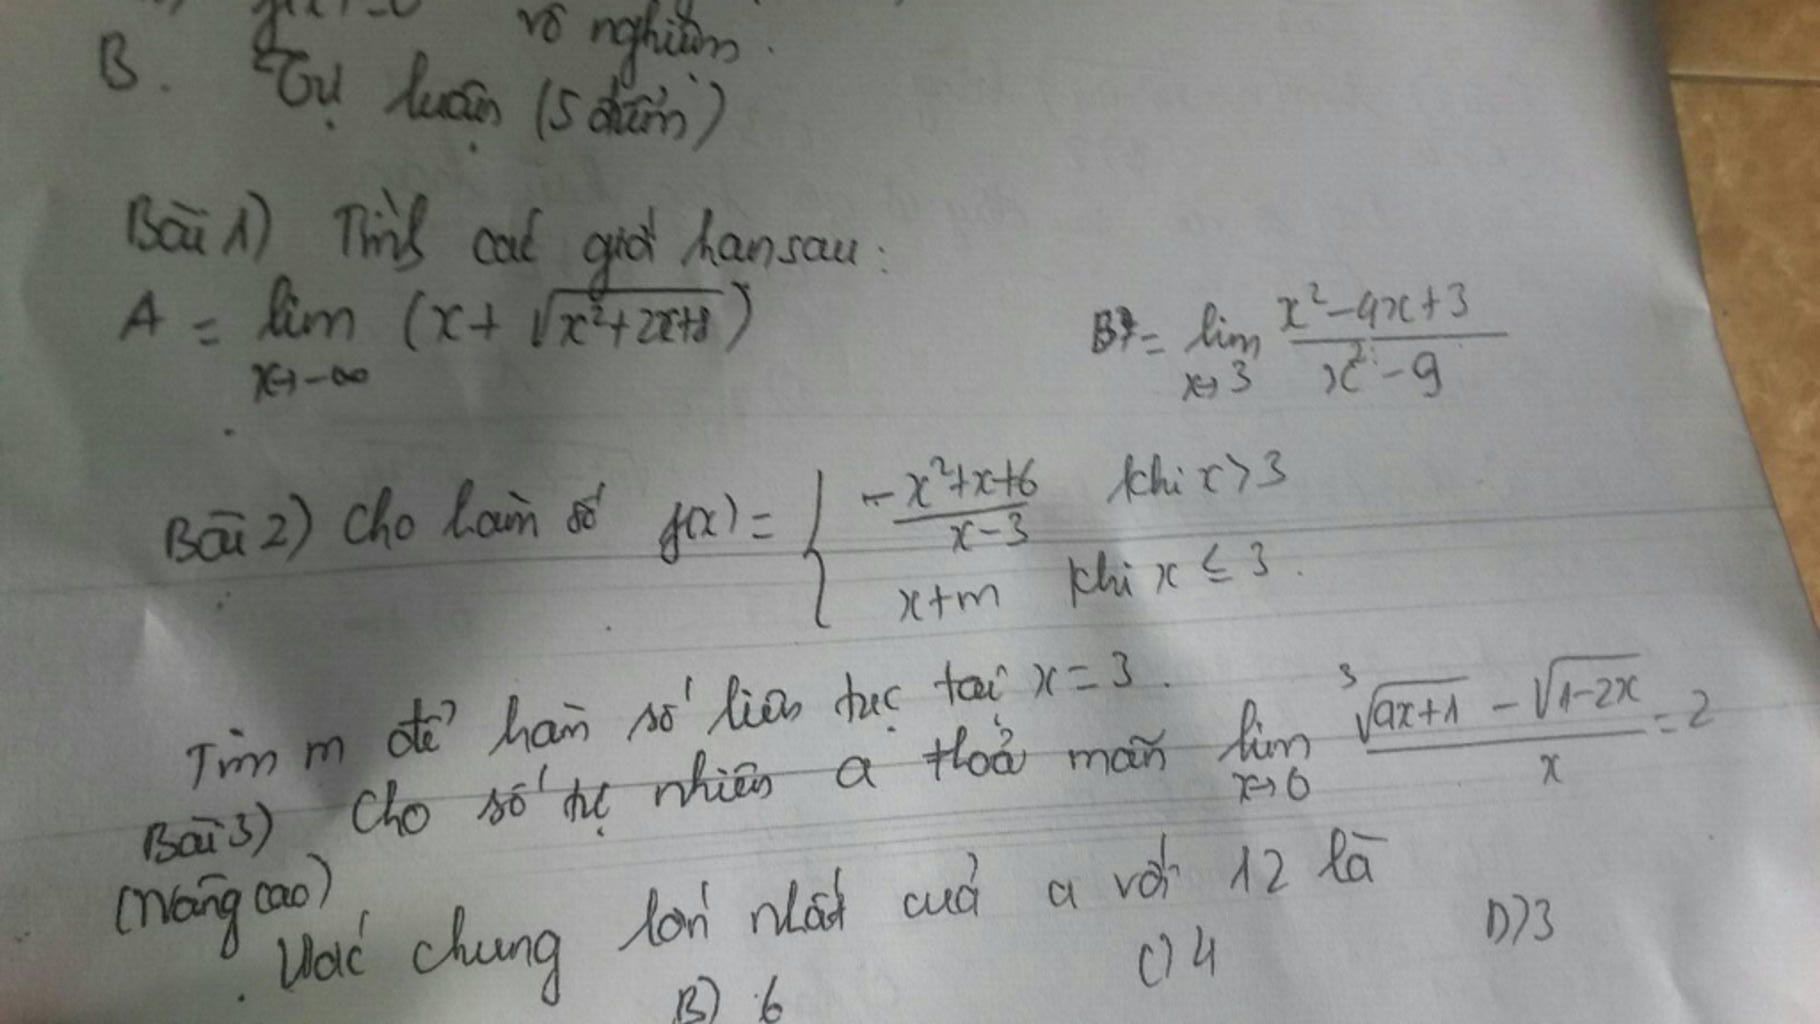 vô nghiệm.
B. Tự luận (5 điểm)
Bài 1) Tính các giới hạn sau:
A = lim x→-∞ (x + √(x²+2x+8))
B = lim x→3 (x²-4x+3)/(x²-9)
Bài 2) Cho hàm số f(x) = { (-x²+x+6)/(x-3) khi x > 3
x+m khi x ≤ 3.
Tìm m để hàm số liên tục tại x = 3.
Bài 3) Cho số tự nhiên a thoả mãn lim x→0 (³√(ax+1) - √(1-2x))/x = 2
(Nâng cao)
Ước chung lớn nhất của a với 12 là
B) 6 C) 4 D) 3